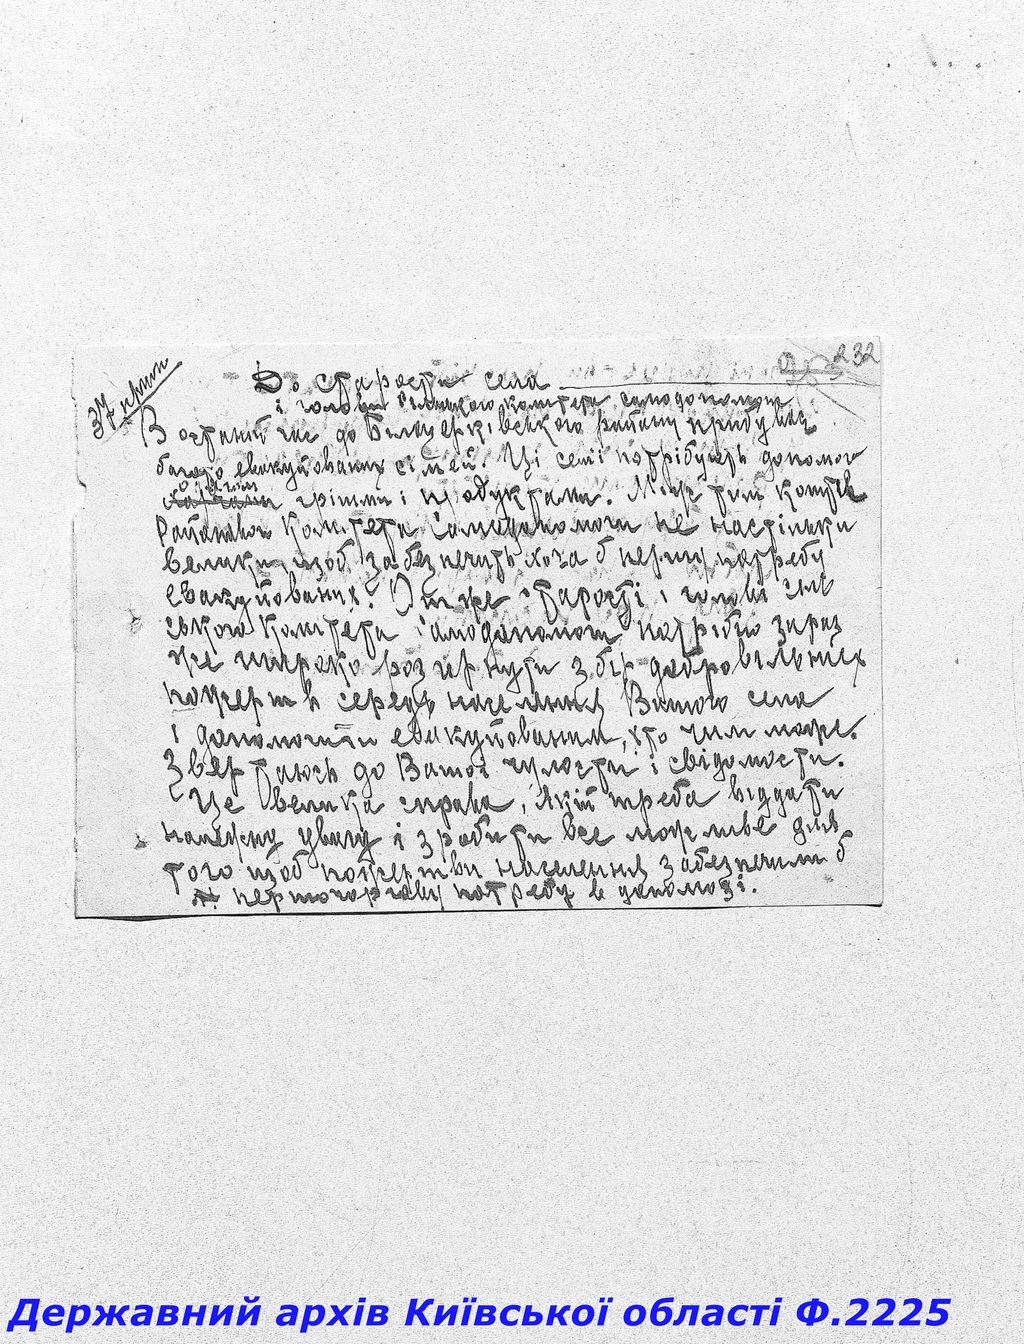 232
37 прим
До старости села
і голови сільського комітета самодопомоги
В останій час до Білоцерківського району прибуло
багато евакуйованих сімей. Ці сем'ї потрібують допомог
грішми і продуктами. Між тим кошти
Районового Комітета Самодопомоги не настільки
великі, щоб забезпечить хоча б першу потребу
евакуйованих. Отже старості і голові сіль
ського Комітета Самодопомоги потрібно зараз
же широко розгорнути збір добровільних
пожертв серед населення Вашого села
і допомогти евакуйованим, хто чим може.
Звертаюсь до Вашої чулости і свідомости.
Це велика справа, якій треба віддати
належну увагу і зробити все можливе для
того щоб пожертви населення забезпечили б
першочергову потребу в допомозі.
Державний архів Київської області Ф.2225